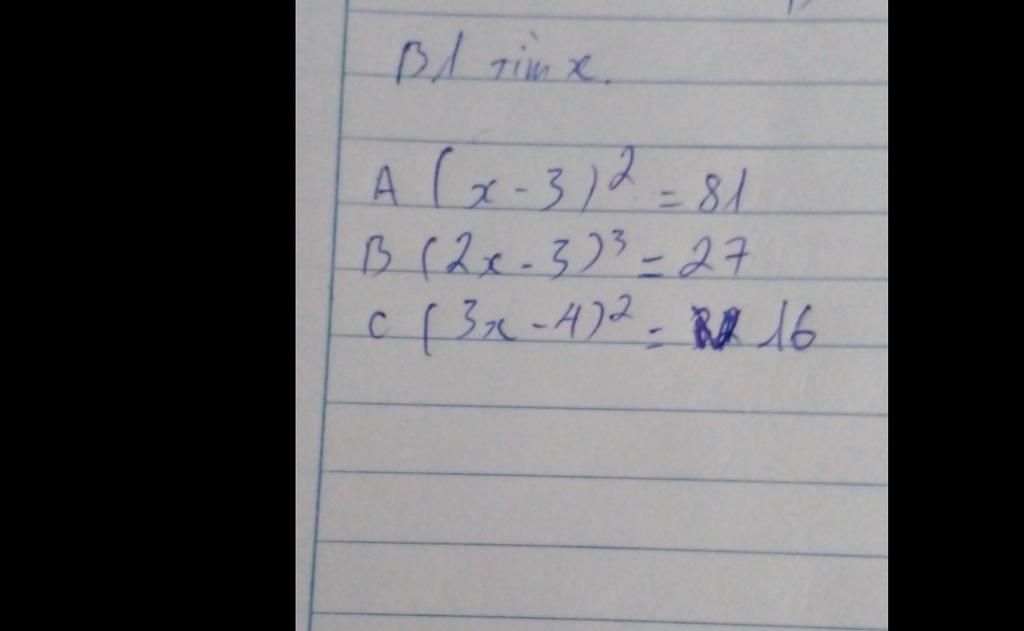 B1 Tìm x.
A (x - 3)² = 81
B (2x - 3)³ = 27
C (3x - 4)² = 16